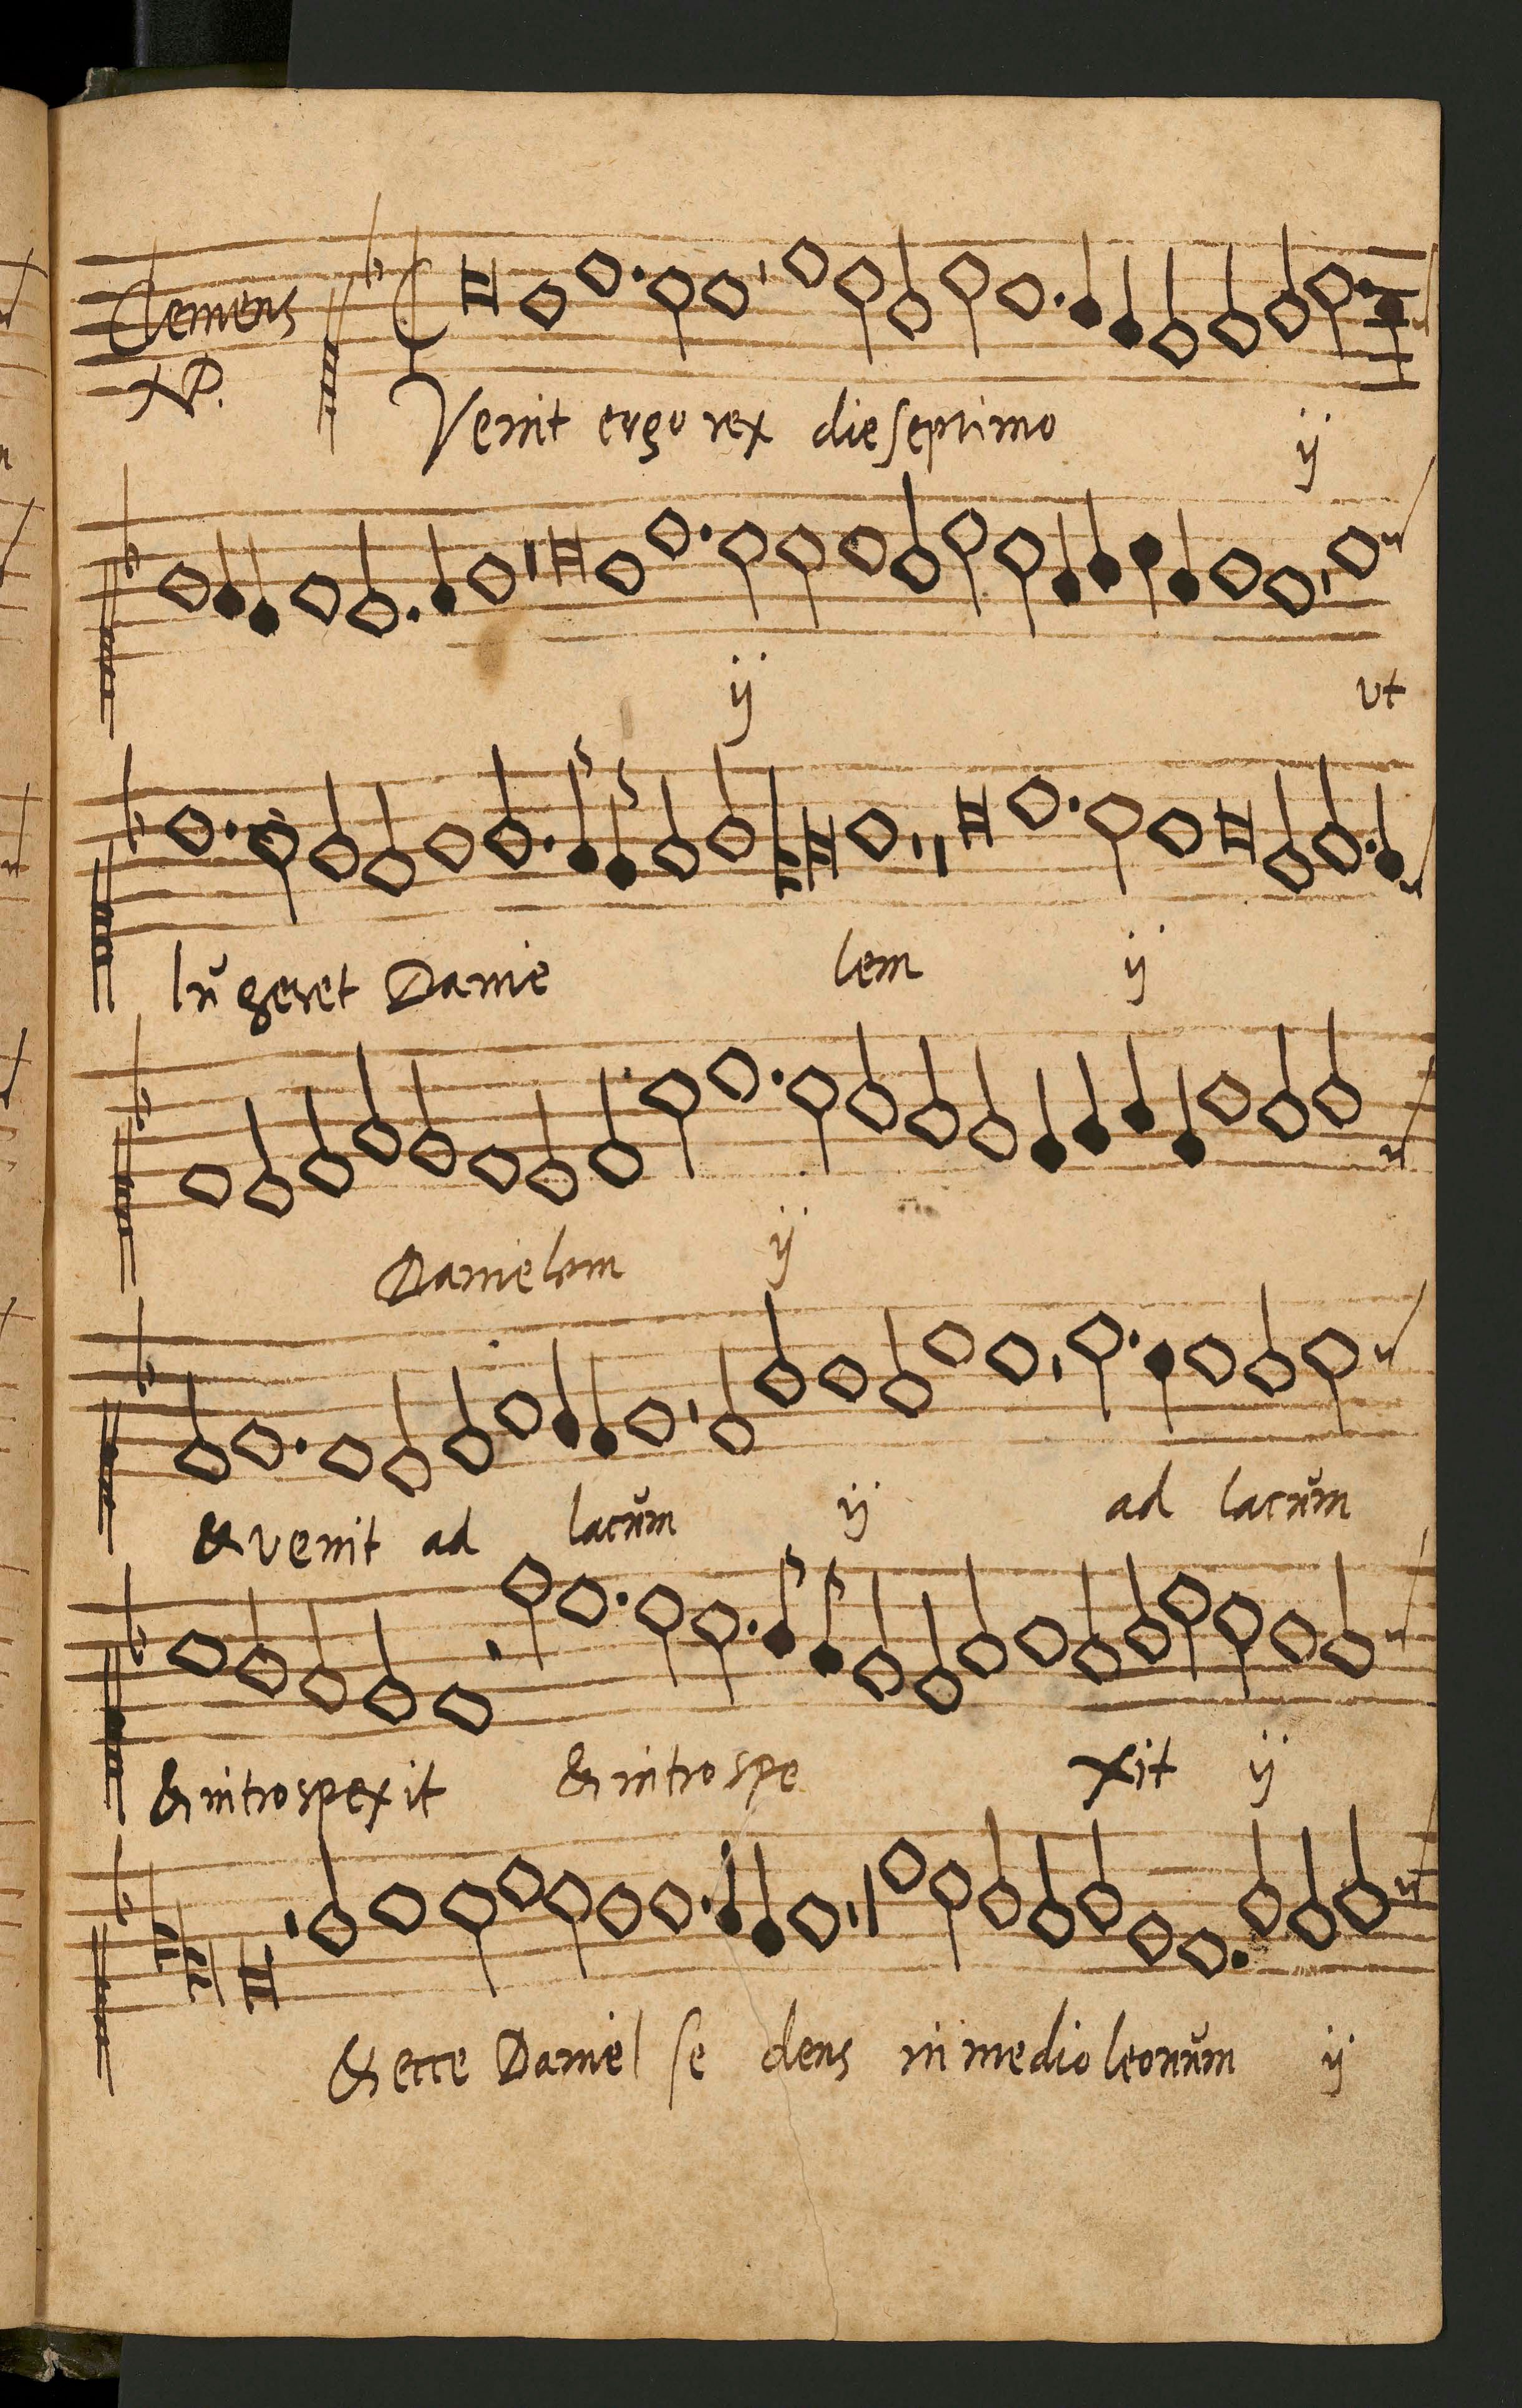 Clemens
XP.
Venit ergo rex die septimo ij
ij ut
lŭgeret Danie lem ij
Danielem ij
& venit ad lacŭm ij ad lacŭm
& introspexit & introspe xit ij
& ecce Daniel se dens in medio leonŭm ij